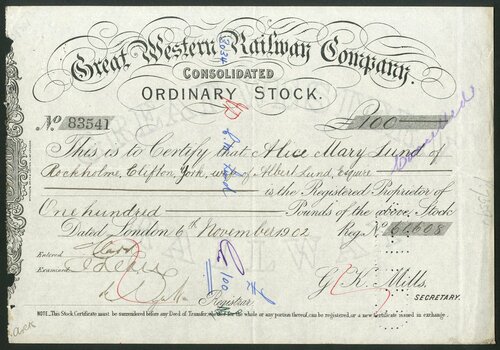 Great Western Railway Company.
CONSOLIDATED
ORDINARY STOCK.
No 83541 £100
This is to Certify that Alice Mary Lund of
Rockholme, Clifton, York, wife of Albert Lund, Esquire
is the Registered Proprietor of
One hundred Pounds of the above Stock
Dated London 6th November 1902 Reg. No. 61,608
Cancelled
Entered
Examined
Registrar
G. K. Mills.
SECRETARY.
NOTE. This Stock Certificate must be surrendered before any Deed of Transfer, whether for the whole or any portion thereof, can be registered, or a new Certificate issued in exchange.